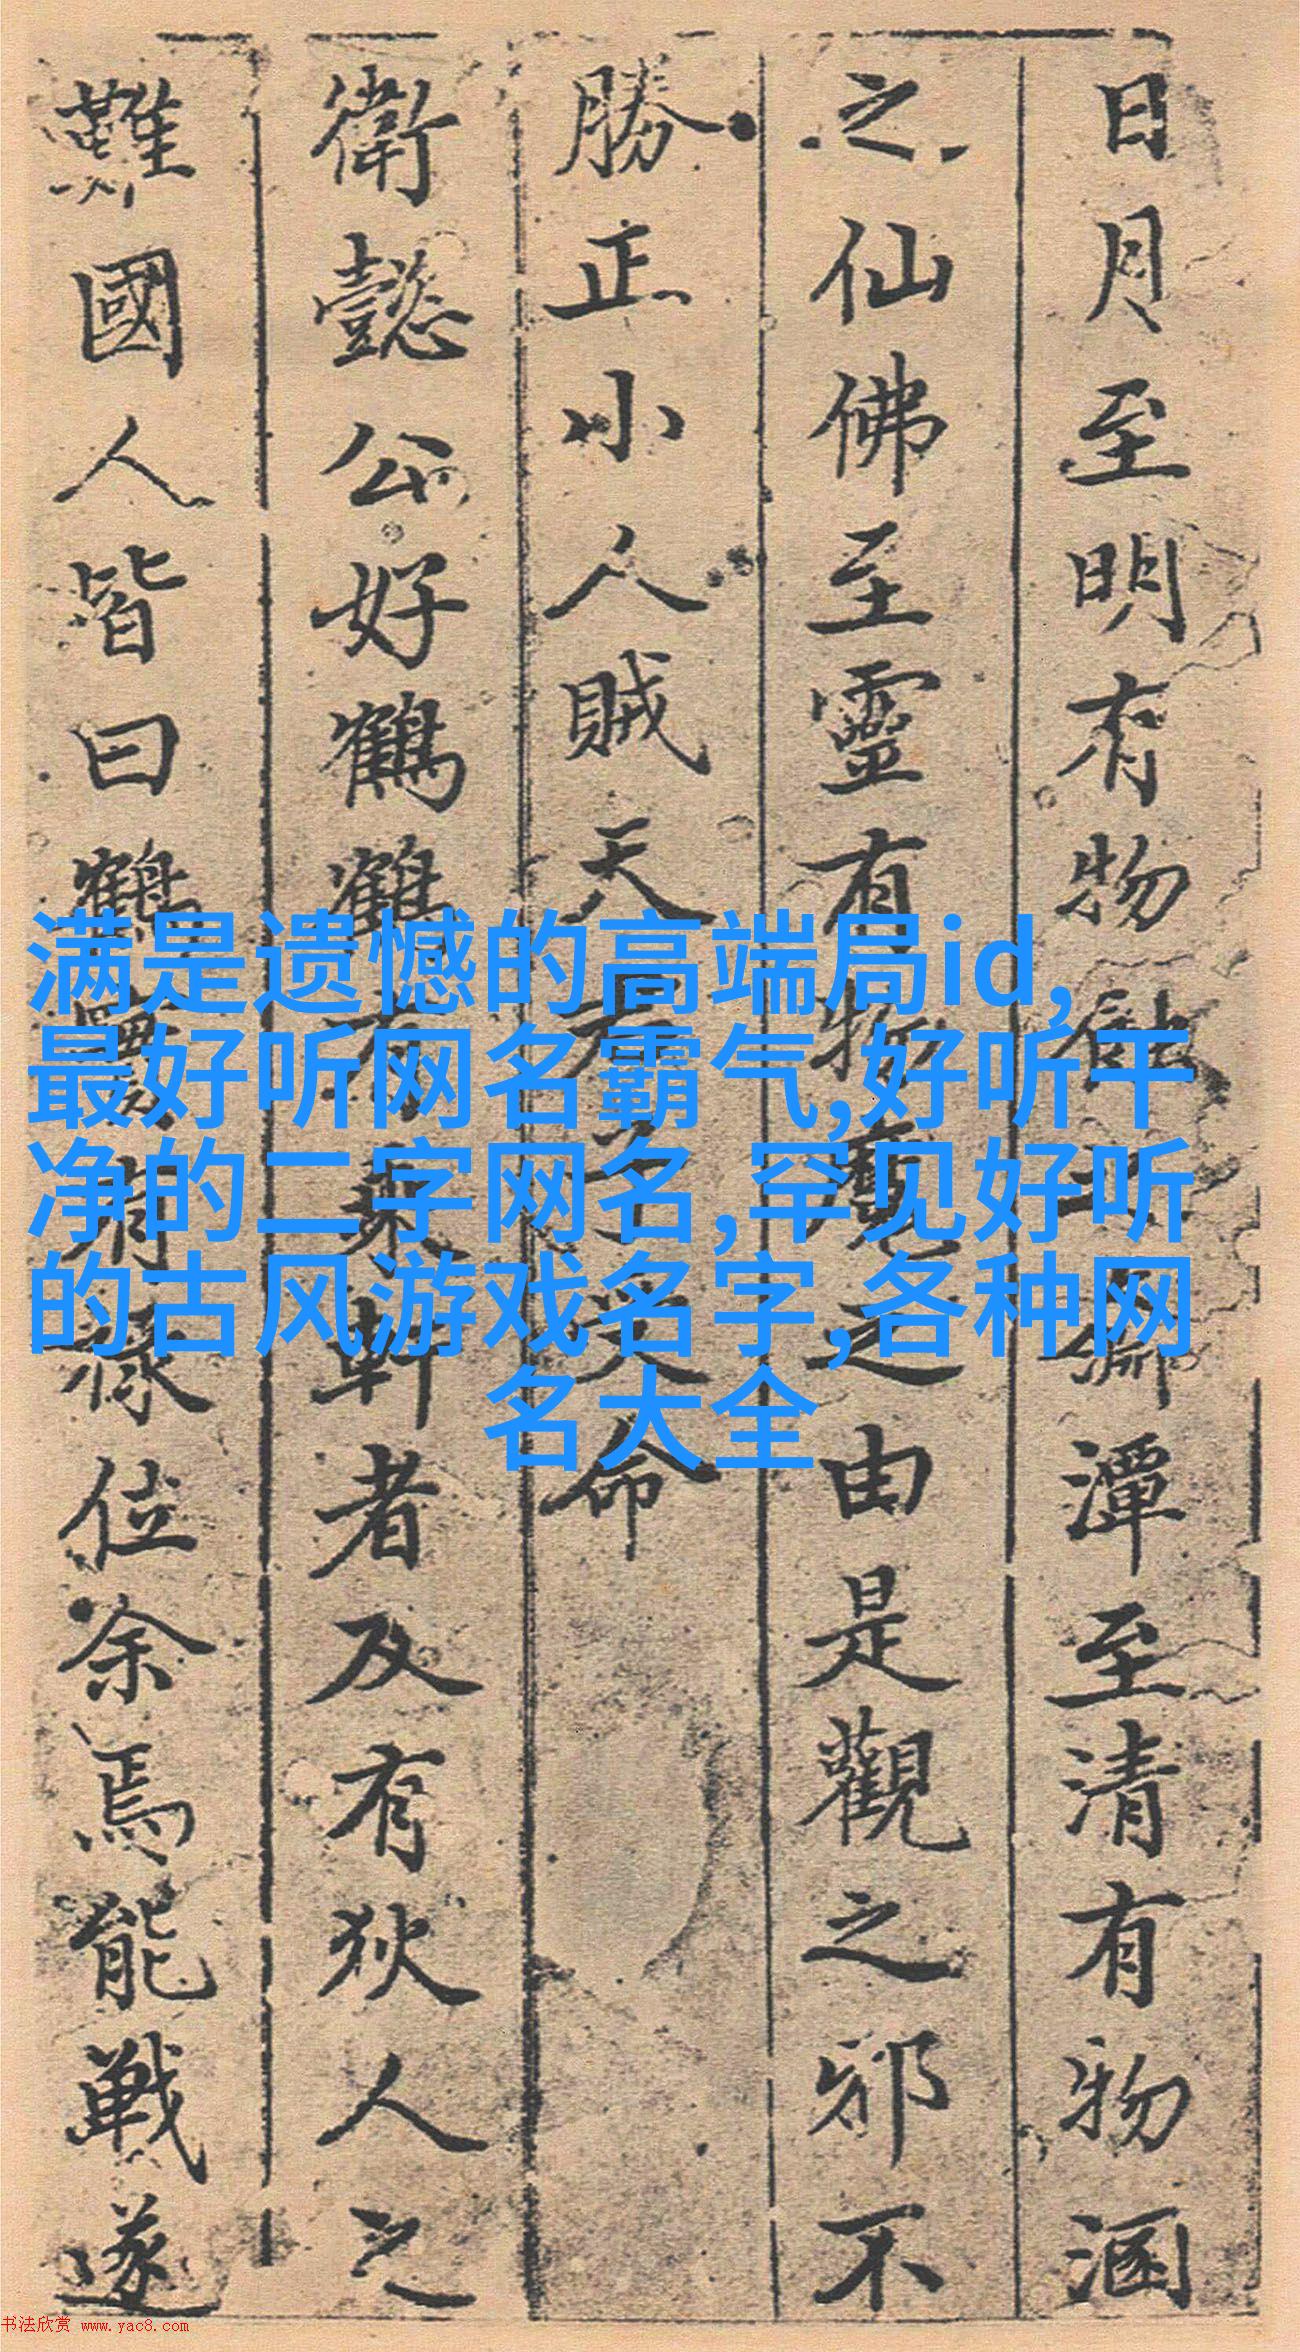 日月至明有物蝕之江潭至清有物涵
之仙佛至靈有物魔之由是觀之邪不
勝正小人賊天有之天命
衛懿公好鶴鶴有乘軒者及有狄人之
難國人皆曰鶴實有祿位余焉能戰遂
满是遗憾的高端局id,
最好听网名霸气,好听干
净的二字网名,罕见好听
的古风游戏名字,各种网
名大全
书法欣赏 www.yac8.com